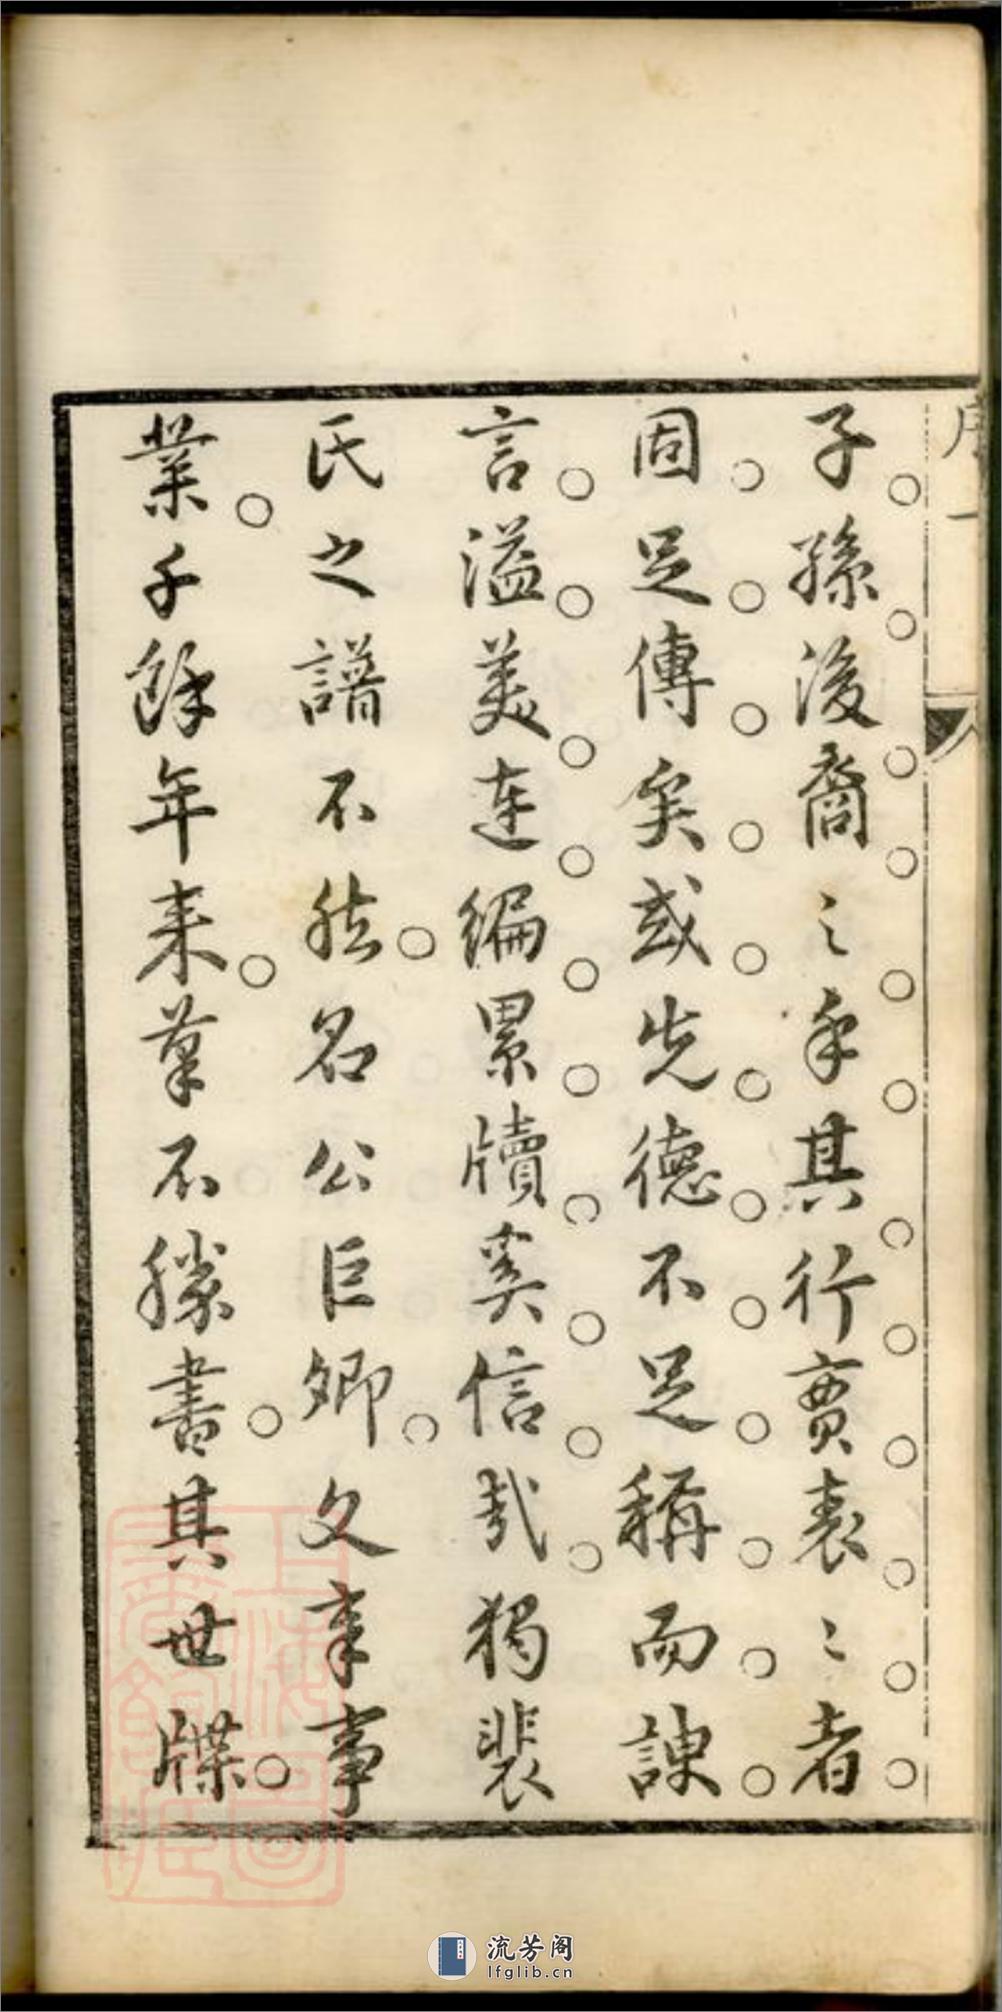 序 一
子孫後裔之手其行實表〻者
固足傳矣或先德不足稱而諛
言溢美連編累牘奚信哉獨裴
氏之譜不然名公巨卿文章事
業千餘年來筆不勝書其世牒
上海圖書館藏
流芳阁
lfglib.cn